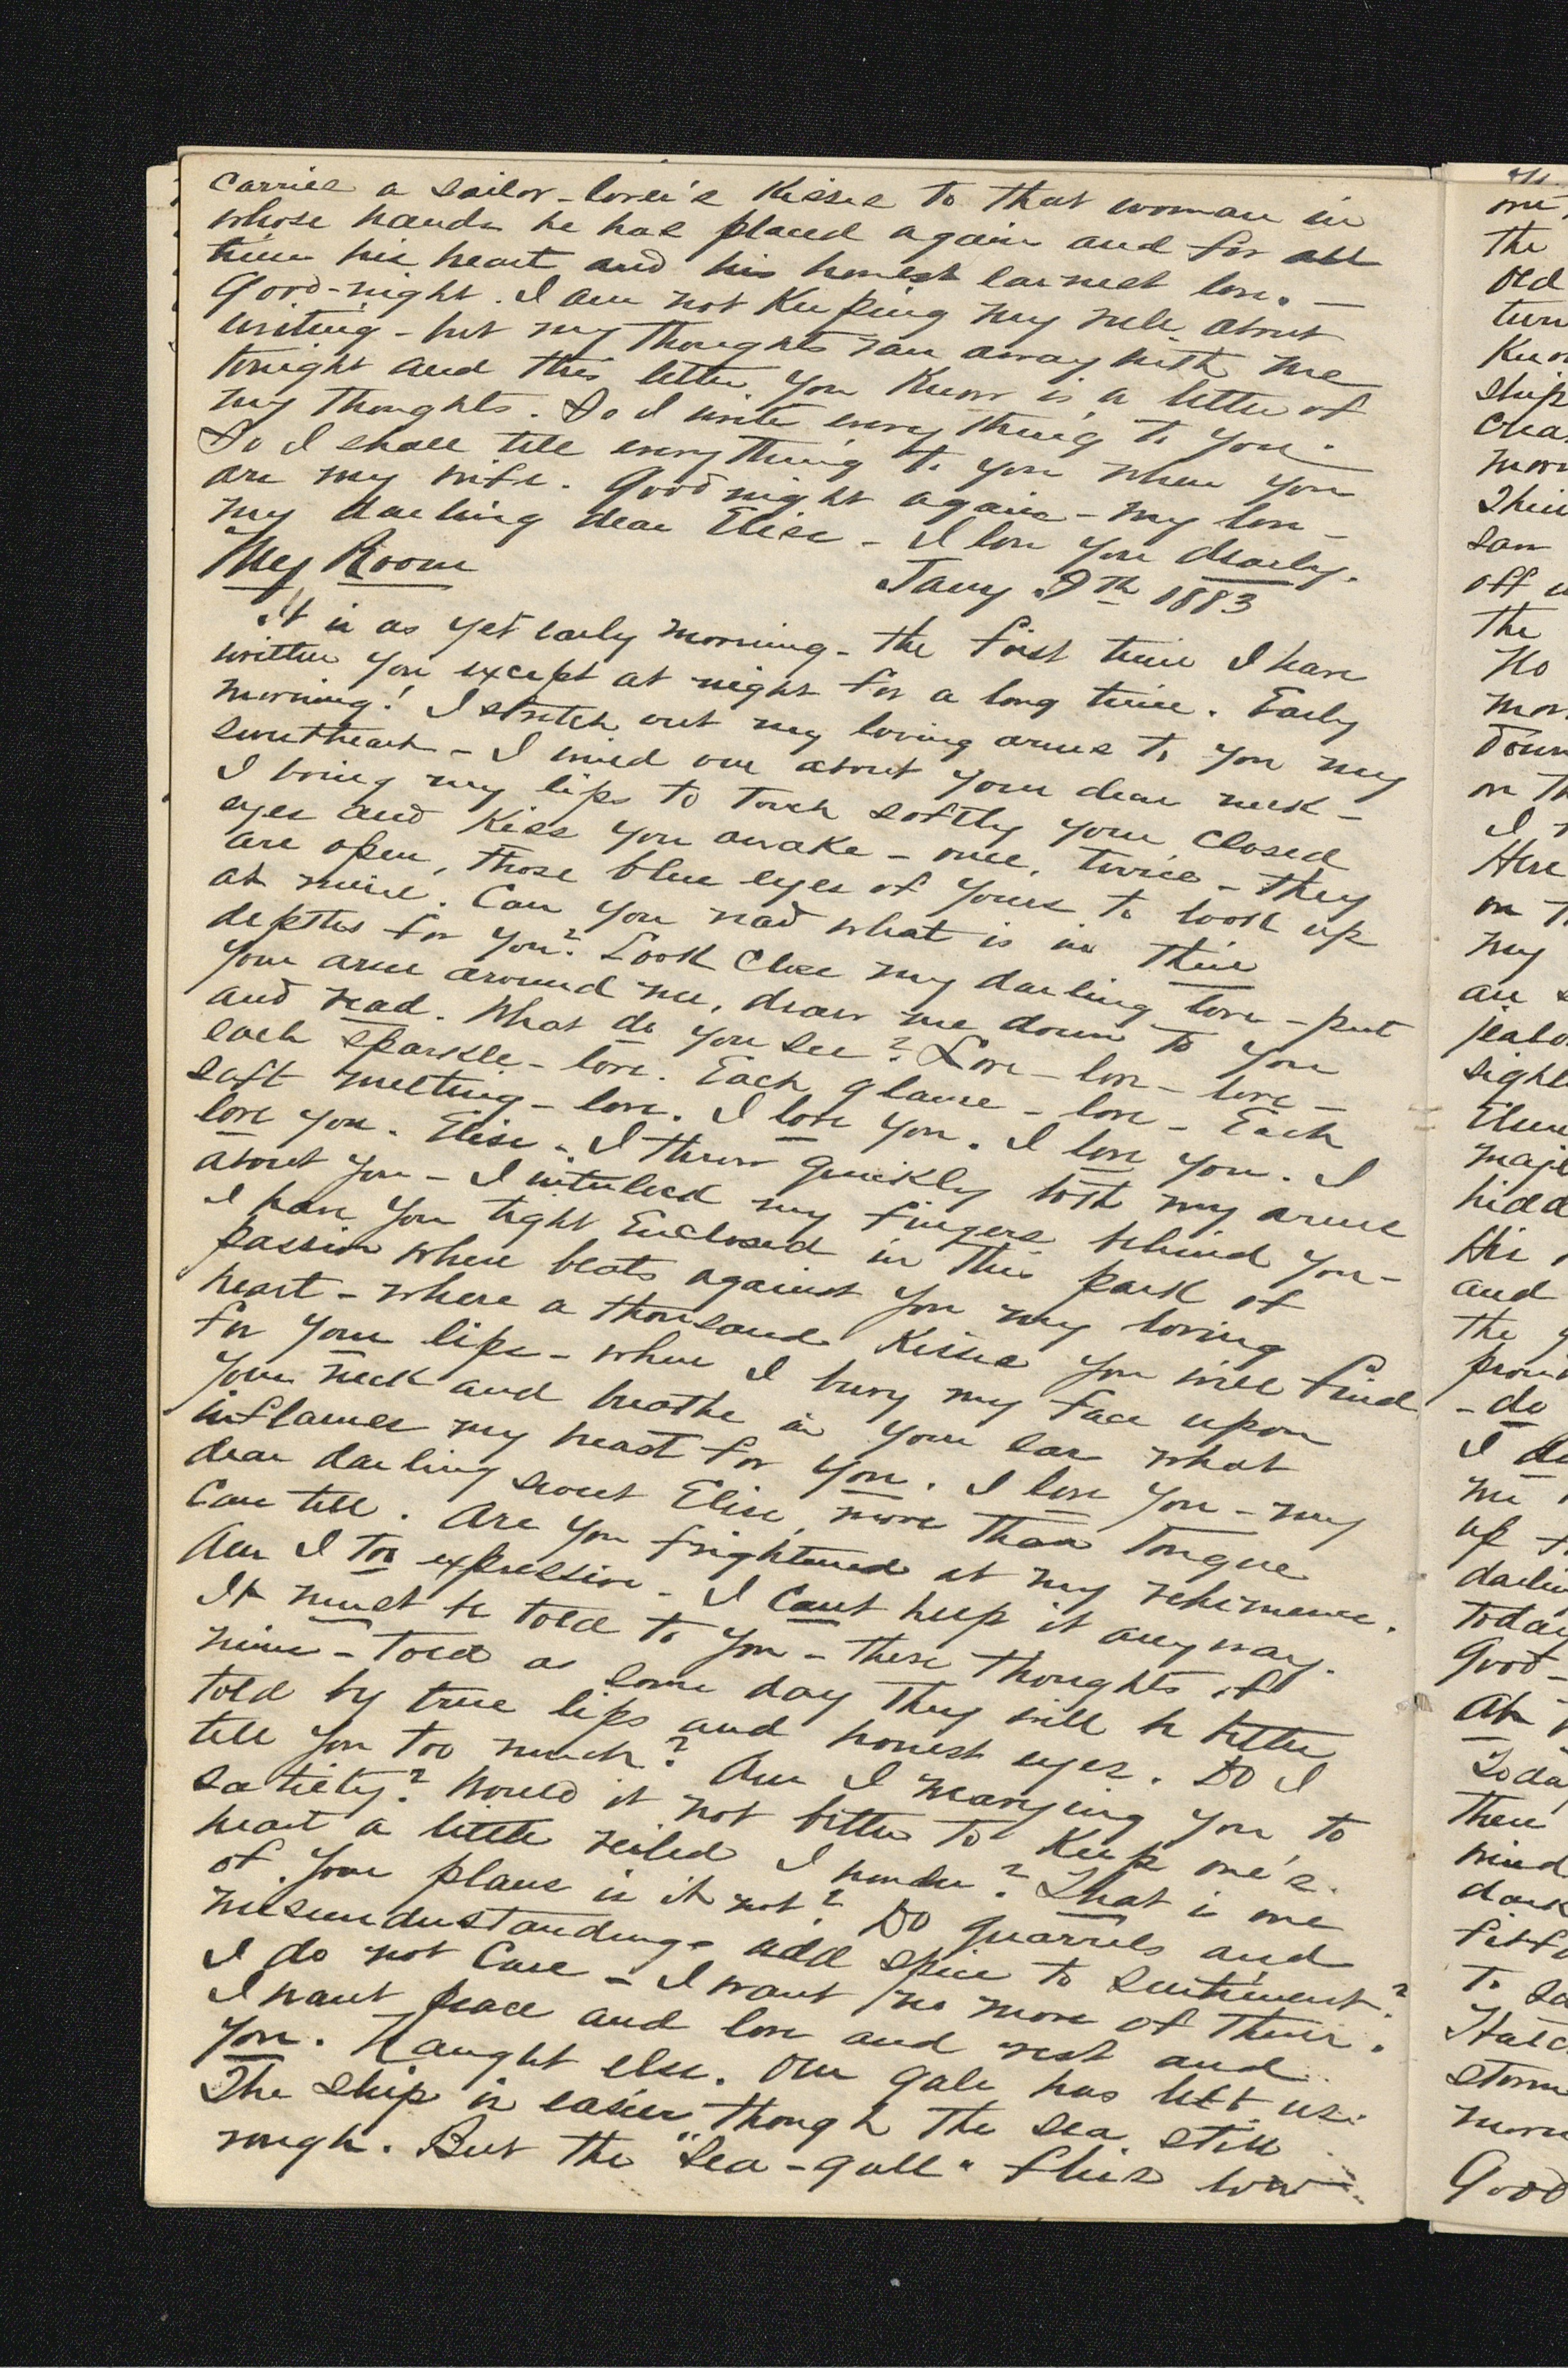 carries a sailor-lover's kisses to that woman in
whose hands he has placed again and for all
time his heart and his honest earnest love. —
Good-night. I am not keeping my rule about
writing - but my thoughts ran away with me
tonight and this letter you know is a letter of
my thoughts. So I write everything to you.
So I shall tell everything to you when you
are my wife. Good night again - my love -
my darling dear Elise - I love you dearly.
My Room
Jany 9th 1883
It is as yet early morning - the first time I have
written you except at night for a long time. Early
morning! I stretch out my loving arms to you my
sweetheart - I wind one about your dear neck -
I bring my lips to touch softly your closed
eyes and kiss you awake - once, twice - they
are open, those blue eyes of yours to look up
at mine. Can you read what is in their
depths for you? Look close my darling love - put
your arm around me, draw me down to you
and read. What do you see? Love - love - love -
each sparkle - love. Each glance - love - Each
soft melting - love. I love you. I love you. I
love you. Elise - I throw quickly both my arms
about you - I interlock my fingers behind you -
I have you tight enclosed in this park of
passion where beats against you my loving
heart - where a thousand kisses you will find
for your lips - where I bury my face upon
your neck and breathe in your ear what
inflames my heart for you. I love you - my
dear darling sweet Elise, more than tongue
can tell. Are you frightened at my vehemence.
Am I too expressive - I cant help it anyway.
It must be told to you - these thoughts of
mine - told as some day they will be better
told by true lips and honest eyes. Do I
tell you too much? Am I wearying you to
satiety? Would it not better to keep one's
heart a little veiled I wonder? That is one
of your plans is it not? Do quarrels and
misunderstandings add spice to sentiment?
I do not care - I want no more of them.
I want peace and love and rest and
you. Naught else. Our gale has left us.
The ship is easier though the sea still
rough. But the "Sea-gull" flies low
one
the
old
turn
ship
morn
Thin
saw
off
the
No
mor
down
on
I
Here
on
my
an
sight
hidd
His
and
the
- do
I
me
up
darlin
today
Good-
At
Toda
then
mind
dark
to
storm
morn
Good